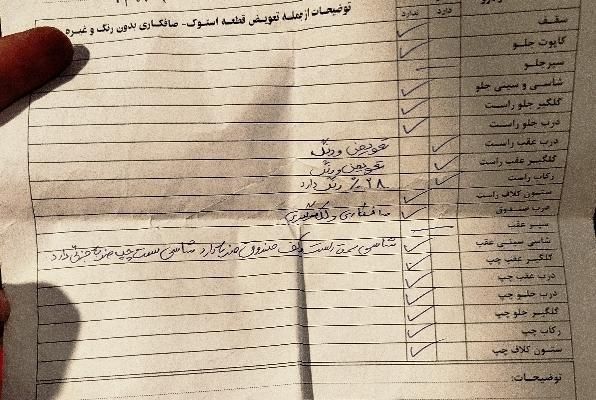 توضیحات از جمله تعویض قطعه استوک - صافکاری بدون رنگ و غیره
دارد ندارد
سقف
کاپوت جلو
سپر جلو
شاسی و سینی جلو
گلگیر جلو راست
درب جلو راست
درب عقب راست تعویض و رنگ
گلگیر عقب راست تعویض و رنگ
رکاب راست ۲۸٪ رنگ دارد
ستون کلاف راست
درب صندوق صافکاری و لکه‌گیری
سپر عقب
شاسی سینی عقب شاسی سمت راست کف صندوق ضربه دارد شاسی سمت چپ ضربه جزئی دارد
گلگیر عقب چپ
درب عقب چپ
درب جلو چپ
گلگیر جلو چپ
رکاب چپ
ستون کلاف چپ
توضیحات: